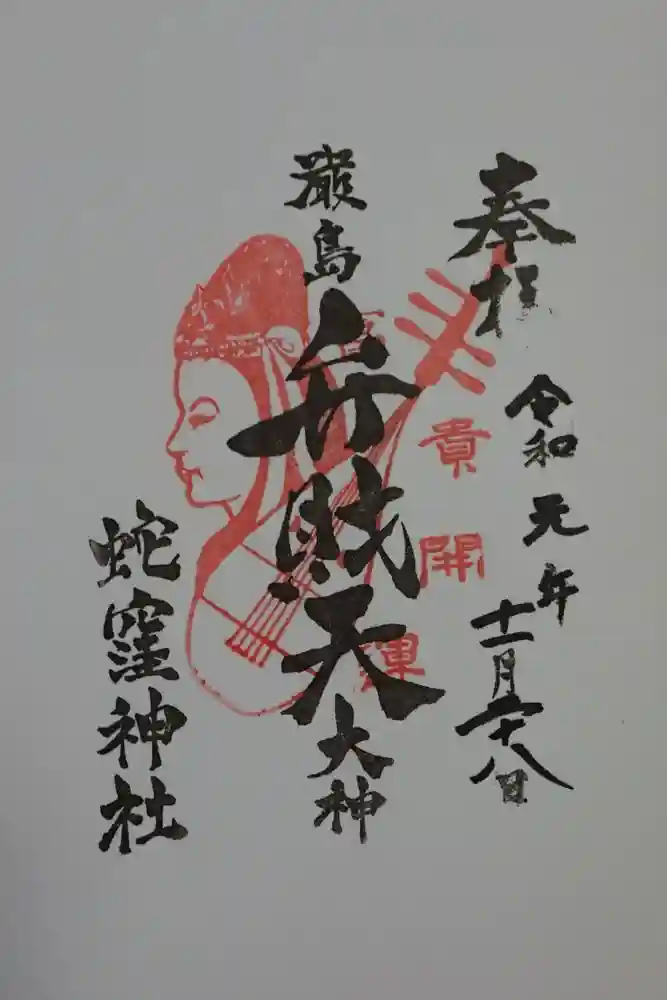 奉拝
令和元年
十一月二十八日
貴
開
運
厳島
弁財天
大神
蛇窪神社